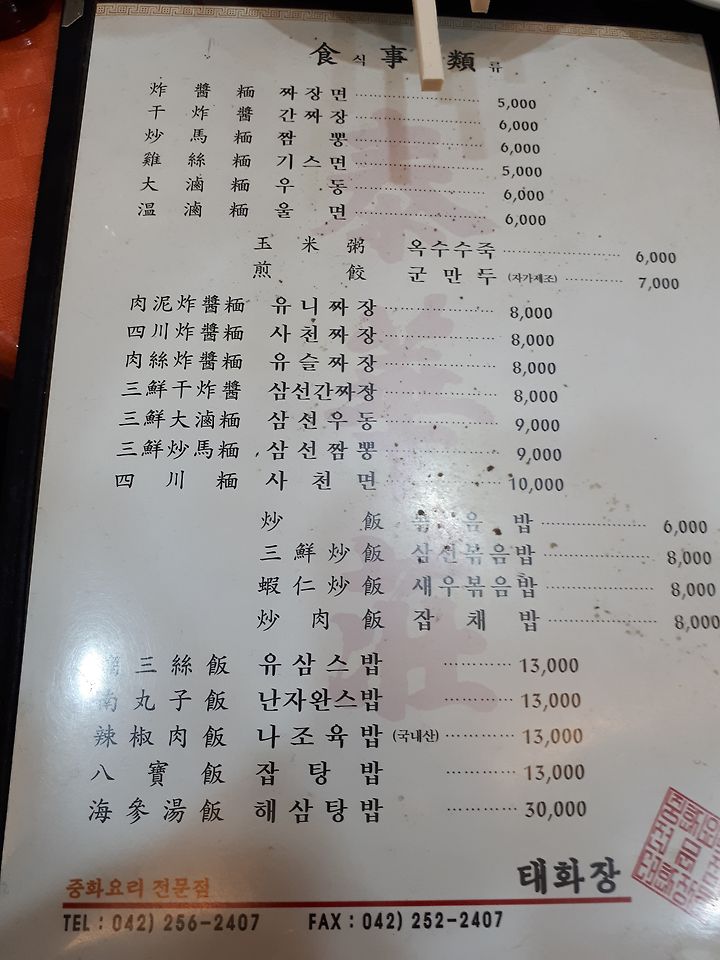 食식事類류
炸醬麵 짜장면 5,000
干炸醬 간짜장 6,000
炒馬麵 짬뽕 6,000
雞絲麵 기스면 5,000
大滷麵 우동 6,000
温滷麵 울면 6,000
玉米粥 옥수수죽 6,000
煎餃 군만두 (자가제조) 7,000
肉泥炸醬麵 유니짜장 8,000
四川炸醬麵 사천짜장 8,000
肉絲炸醬麵 유슬짜장 8,000
三鮮干炸醬 삼선간짜장 8,000
三鮮大滷麵 삼선우동 9,000
三鮮炒馬麵 삼선짬뽕 9,000
四川麵 사천면 10,000
炒飯 볶음밥 6,000
三鮮炒飯 삼선볶음밥 8,000
蝦仁炒飯 새우볶음밥 8,000
炒肉飯 잡채밥 8,000
三絲飯 유삼스밥 13,000
南丸子飯 난자완스밥 13,000
辣椒肉飯 나조육밥 (국내산) 13,000
八寶飯 잡탕밥 13,000
海參湯飯 해삼탕밥 30,000
중화요리 전문점 태화장
TEL : 042) 256-2407 FAX : 042) 252-2407